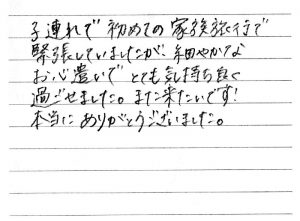 子連れで初めての家族旅行で
緊張していましたが、細やかな
お心遣いでとても気持ち良く
過ごせました。また来たいです!
本当にありがとうございました。